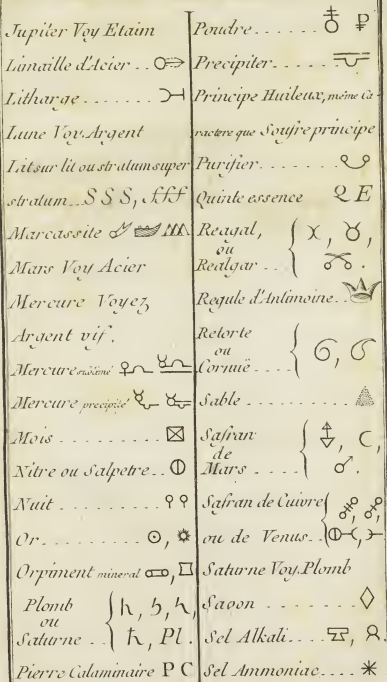 Jupiter Voy Etaim
Limaille d'Acier . .
Litharge . . . . . . .
Lune Voy. Argent
Lit sur lit ou stratum super
stratum . . S S S, fff
Marcassite
Mars Voy Acier
Mercure Voyez
Argent vif.
Mercure sublimé
Mercure precipité
Mois . . . . . . . . .
Nitre ou Salpetre . .
Nuit . . . . . . . .
Or . . . . . . . . .
Orpiment mineral
Plomb
ou
Saturne . . Pl.
Pierre Calaminaire P C
Poudre . . . . . .
Precipiter . . . . .
Principe Huileux, même Ca
ractere que Soufre principe
Purifier . . . . . .
Quinte essence Q E
Reagal,
ou
Realgar . . .
Regule d'Antimoine . .
Retorte
ou
Cornuë . . .
Sable . . . . . . .
Safran
de
Mars . . . .
Safran de Cuivre
ou de Venus . .
Saturne Voy. Plomb
Savon . . . . . . .
Sel Alkali . . . .
Sel Ammoniac . . . .